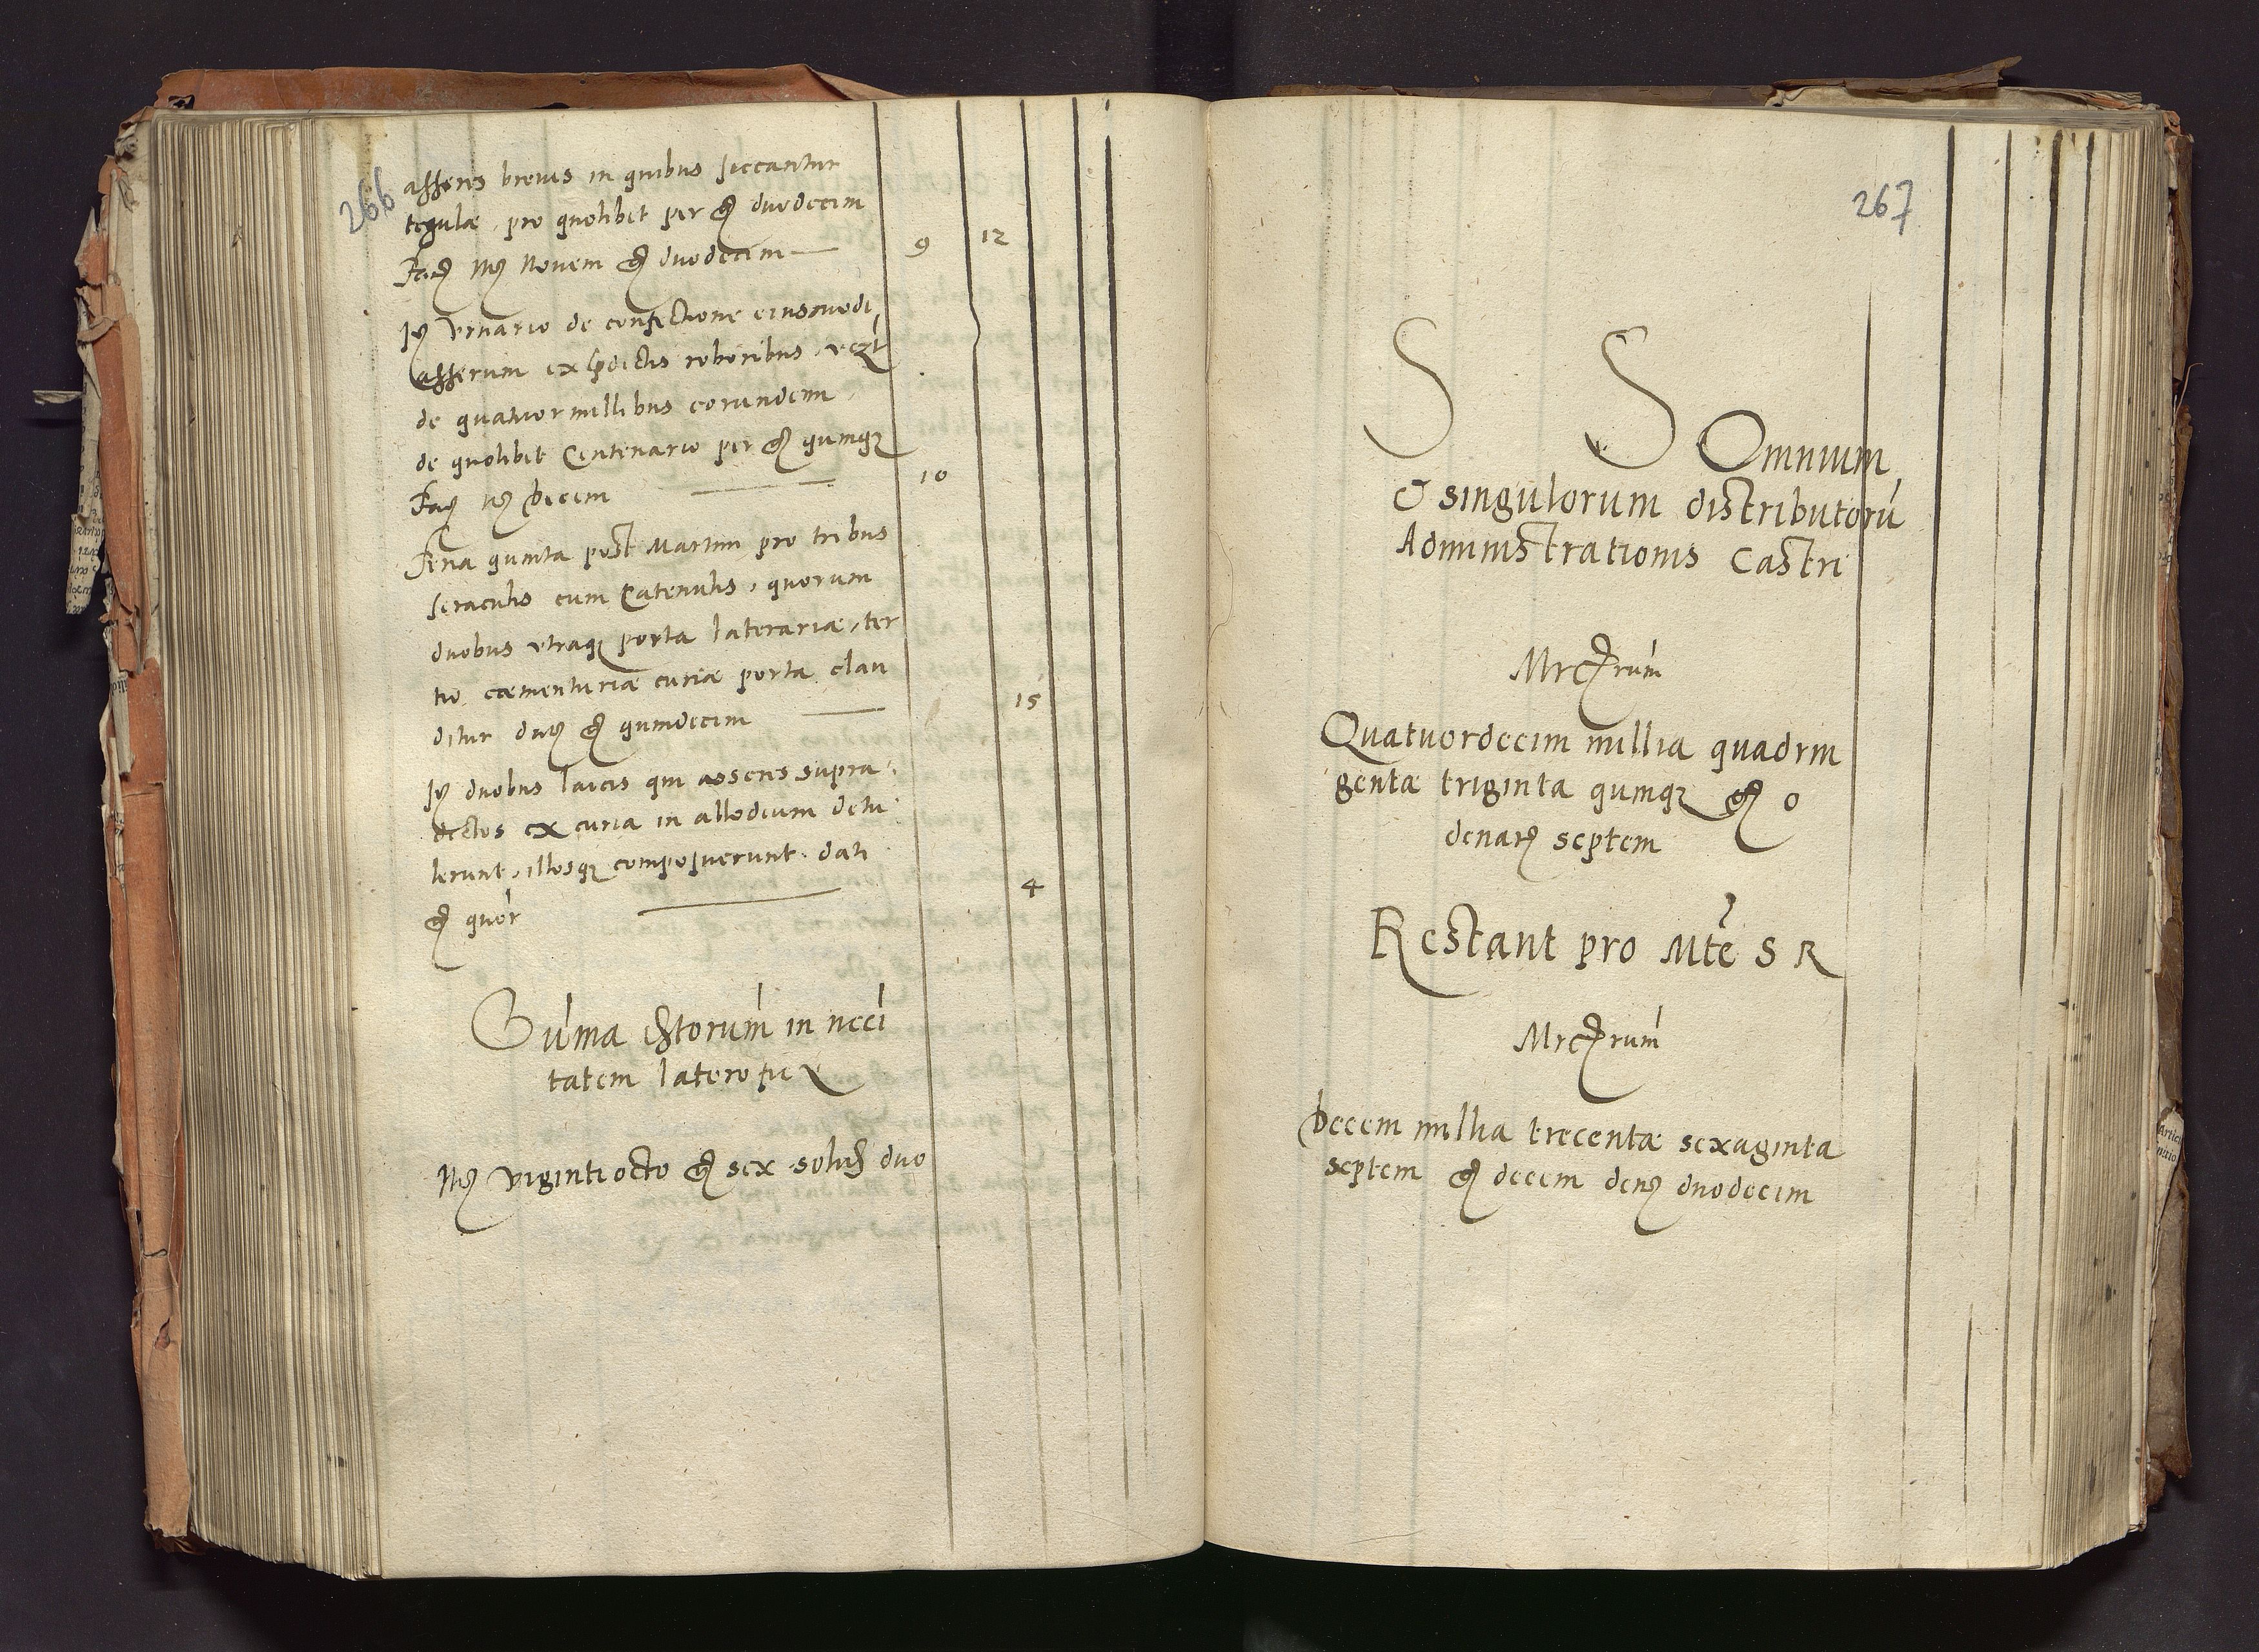 266
asseres breves in quibus siccantur
tegulæ, pro quolibet per gͬ duodecim
Facͭ Mͬ Novem gͬ duodecim 9 12
Itͫ Vrnario de confectione eiusmodi
asserum ex pͬdictis roboribus, vczt
de quatuor millibus eorundem
de quolibet Centenario per gͬ quinqꝫ
Facͭ Mͬ Decem 10
Feria quinta post Martini pro tribus
seraculis cum Catenulis, quorum
duobus vtraqꝫ porta laterariæ, ter
tio cæmenturiæ curiæ porta clau
ditur datͬ gͬ quindecim 15
Itͫ duobus laicis qui asseres supra
dictos ex curia in allodium detu
lerunt, illosqꝫ composuerunt dati
gͬ quor 4
Suma istorum in neci
tatem laterofici
Mͬ viginti octo gͬ sex solidͬ duo
267
S S Omnium
& singulorum distributorū
Administrationis Castri
Mrcͬrum
Quatuordecim millia quadrin
gentæ triginta quinqꝫ gͬ 0
denarͬ septem
Restant pro Mte S R
Mrcͬrum
Decem millia trecentæ sexaginta
septem gͬ decem denͬ duodecim